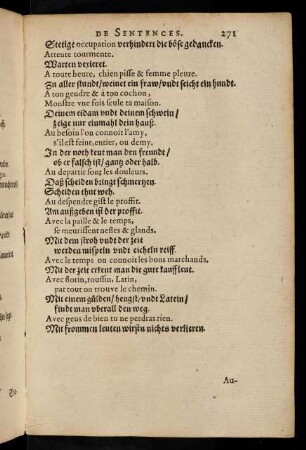 DE SENTENCES. 271
Stetige occupation verhindert die böse gedancken.
Attente tourmente.
Warten vexieret.
A toute heure, chien pisse & femme pleure.
Zu aller stundt/weinet ein fraw/vndt seicht ein hundt.
A ton gendre & à ton cochon,
Monstre vne fois seule ta maison.
Deinem eidam vndt deinen schwein/
zeige nur einmahl dein hauß.
Au besoin l'on connoit l'amy,
s'il est feint, entier, ou demy.
In der noth kent man den freundt/
ob er falsch ist/gantz oder halb.
Au departir sont les douleurs.
Daß scheiden bringt schmertzen.
Scheiden thut weh.
Au despendre gist le proffit.
Am außgeben ist der proffit.
Avec la paille & le temps,
se meurissent nefles & glands.
Mit dem stroh vndt der zeit
werden mispeln vndt eicheln reiff.
Avec le temps on connoit les bons marchands.
Mit der zeit erkent man die gute kauffleut.
Avec florin, roussin, Latin,
par tout on trouve le chemin.
Mit einem gülden/hengst/vndt Latein/
findt man vberall den weg.
Avec gens de bien tu ne perdras rien.
Mit frommen leuten wirstu nichts verlieren.
Au-